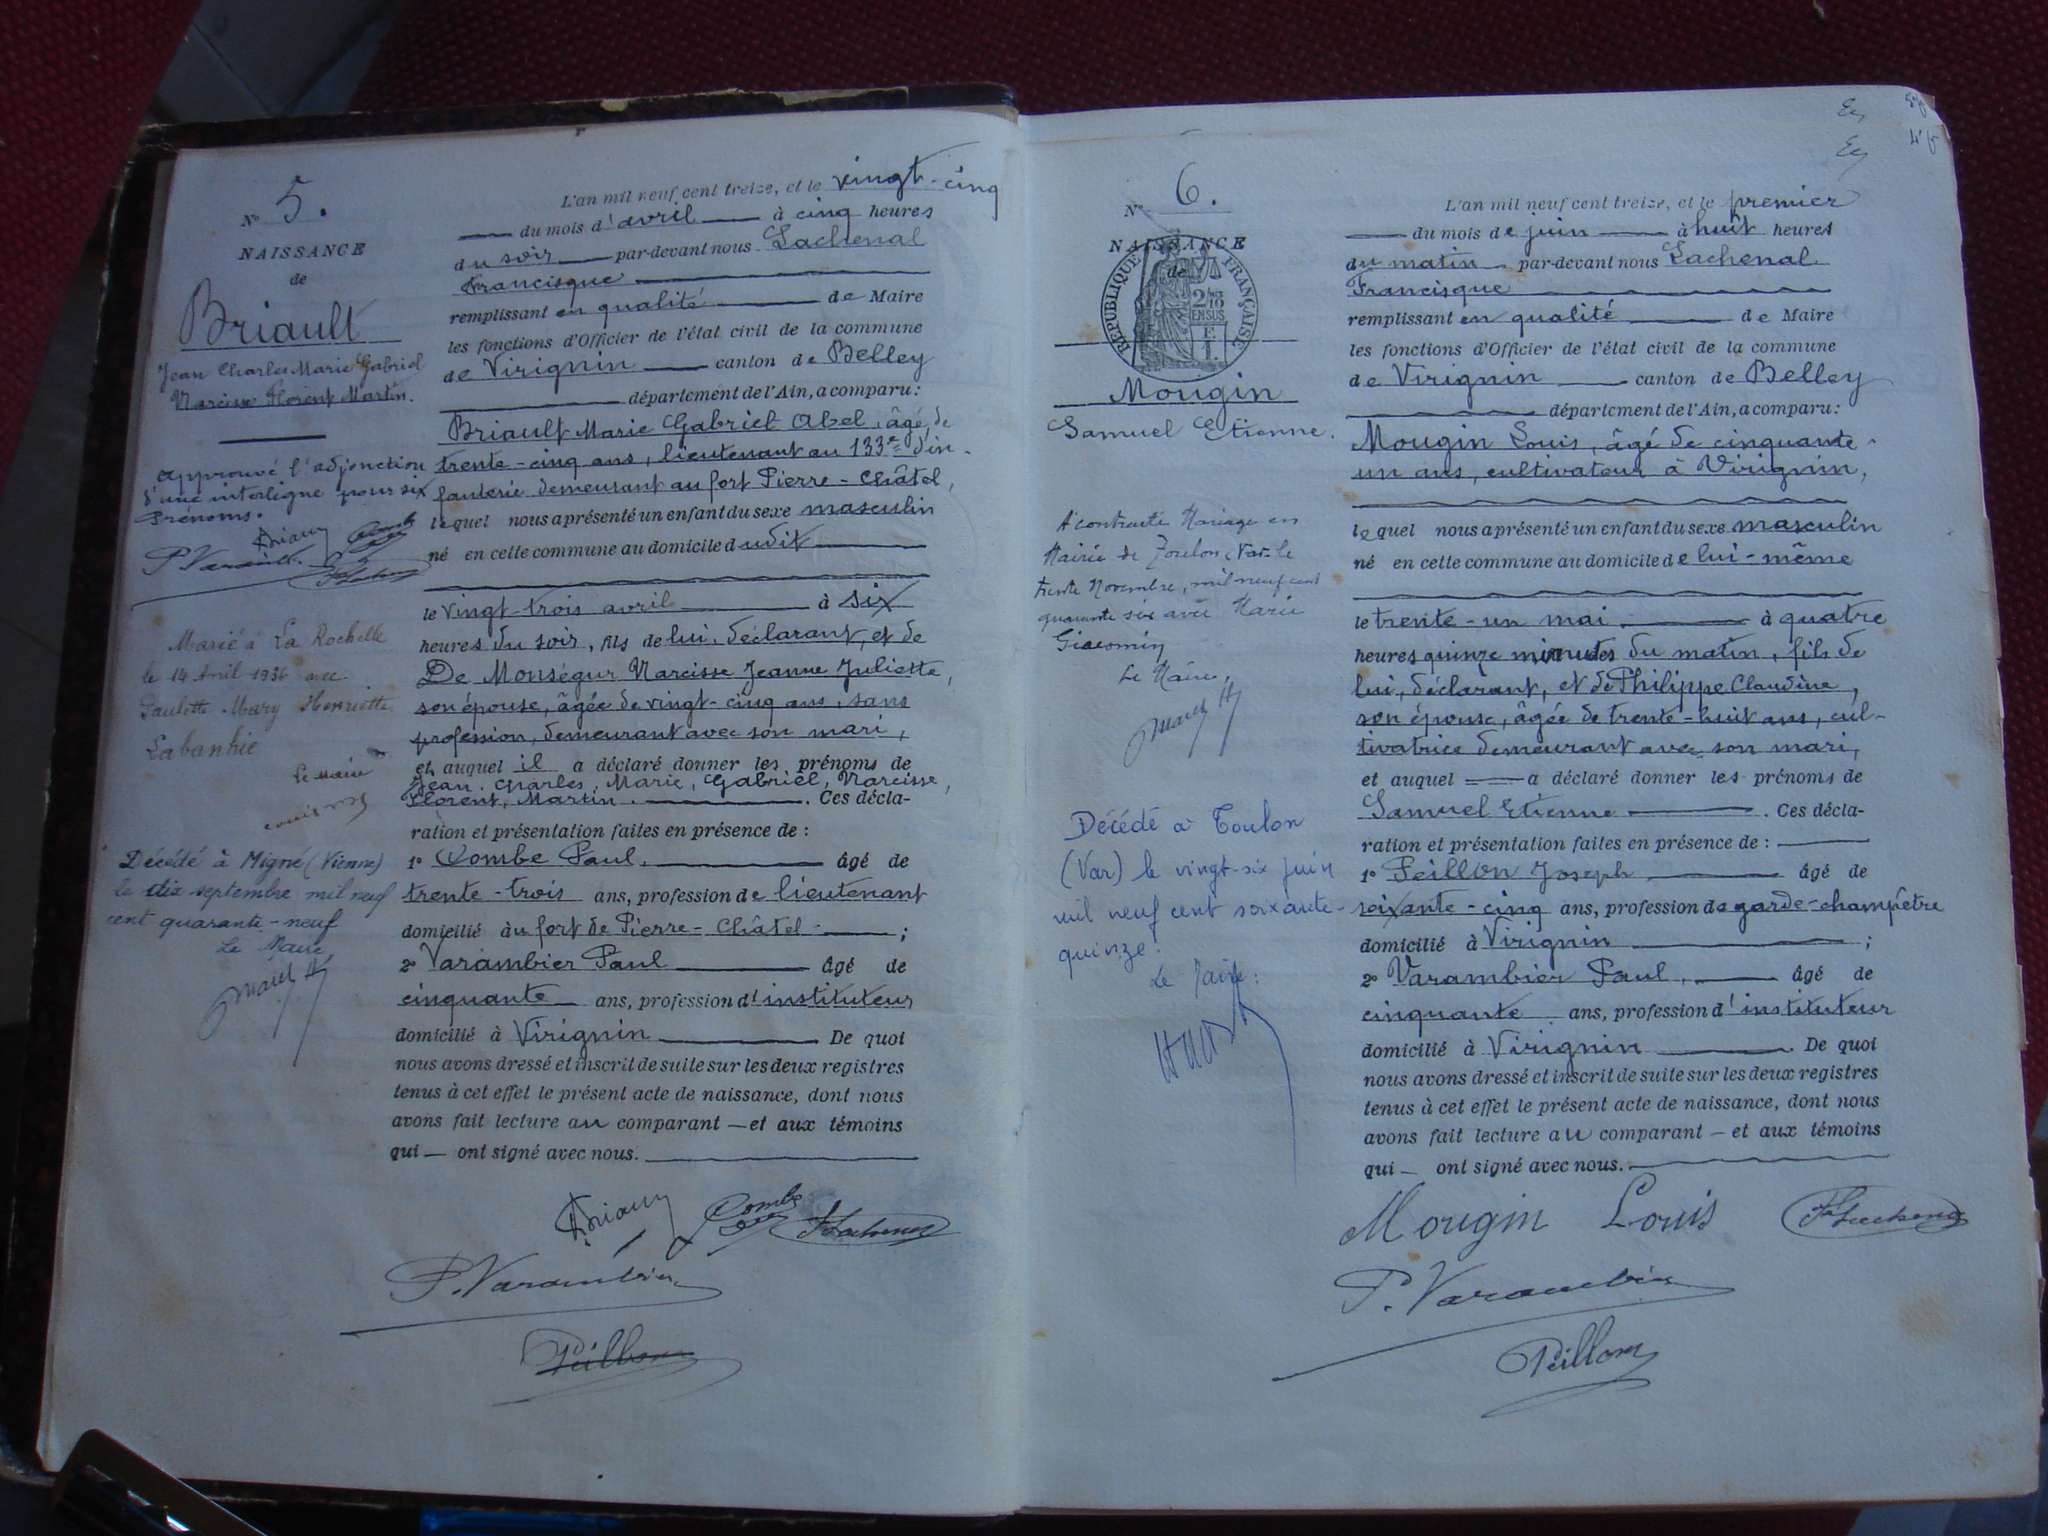 N° 5.
NAISSANCE
de
Briault
Jean Charles Marie Gabriel
Narcisse Florent Martin.
Approuvé l'adjonction
d'une interligne pour six
prénoms.
Marié à La Rochelle
le 14 Avril 1936 avec
Paulette Mary Henriette
Le Maire
Décédé à Migné (Vienne)
le dix septembre mil neuf
cent quarante-neuf
Le Maire
L'an mil neuf cent treize, et le vingt-cinq
du mois d'avril à cinq heures
du soir par-devant nous Lachenal
Francisque
remplissant en qualité de Maire
les fonctions d'Officier de l'état civil de la commune
de Virignin canton de Belley
département de l'Ain, a comparu:
Briault Marie Gabriel Abel, âgé de
trente-cinq ans, lieutenant au 133e d'in-
fanterie demeurant au fort Pierre-Châtel,
lequel nous a présenté un enfant du sexe masculin
né en cette commune au domicile dudit
le vingt-trois avril à six
heures du soir, fils de lui, déclarant, et de
De Monségur Narcisse Jeanne Juliette,
son épouse, âgée de vingt-cinq ans, sans
profession, demeurant avec son mari,
et auquel il a déclaré donner les prénoms de
Jean, Charles, Marie, Gabriel, Narcisse,
Florent, Martin. Ces décla-
ration et présentation faites en présence de:
1° Combe Paul, âgé de
trente-trois ans, profession de lieutenant
domicilié au fort de Pierre-Châtel ;
2° Varambier Paul âgé de
cinquante ans, profession d'instituteur
domicilié à Virignin De quoi
nous avons dressé et inscrit de suite sur les deux registres
tenus à cet effet le présent acte de naissance, dont nous
avons fait lecture au comparant — et aux témoins
qui — ont signé avec nous.
Combe
P. Varambier
Peillon
N° 6.
NAISSANCE
de
RÉPUBLIQUE FRANÇAISE
2/10
EN SUS
Mougin
Samuel Etienne.
A contracté Mariage en
Mairie de Toulon, Var le
trente Novembre, mil neuf cent
quarante six avec Marie
Giacomin
Le Maire,
Décédé à Toulon
(Var) le vingt-six juin
mil neuf cent soixante-
quinze.
Le Maire:
L'an mil neuf cent treize, et le premier
du mois de juin à huit heures
du matin par-devant nous Lachenal
Francisque
remplissant en qualité de Maire
les fonctions d'Officier de l'état civil de la commune
de Virignin canton de Belley
département de l'Ain, a comparu:
Mougin Louis, âgé de cinquante-
un ans, cultivateur à Virignin,
lequel nous a présenté un enfant du sexe masculin
né en cette commune au domicile de lui-même
le trente-un mai à quatre
heures quinze minutes du matin, fils de
lui, déclarant, et de Philippe Claudine,
son épouse, âgée de trente-huit ans, cul-
tivatrice demeurant avec son mari,
et auquel a déclaré donner les prénoms de
Samuel Etienne. Ces décla-
ration et présentation faites en présence de:
1° Peillon Joseph âgé de
soixante-cinq ans, profession de garde-champêtre
domicilié à Virignin ;
2° Varambier Paul, âgé de
cinquante ans, profession d'instituteur
domicilié à Virignin. De quoi
nous avons dressé et inscrit de suite sur les deux registres
tenus à cet effet le présent acte de naissance, dont nous
avons fait lecture au comparant — et aux témoins
qui — ont signé avec nous.
Mougin Louis
P. Varambier
Peillon